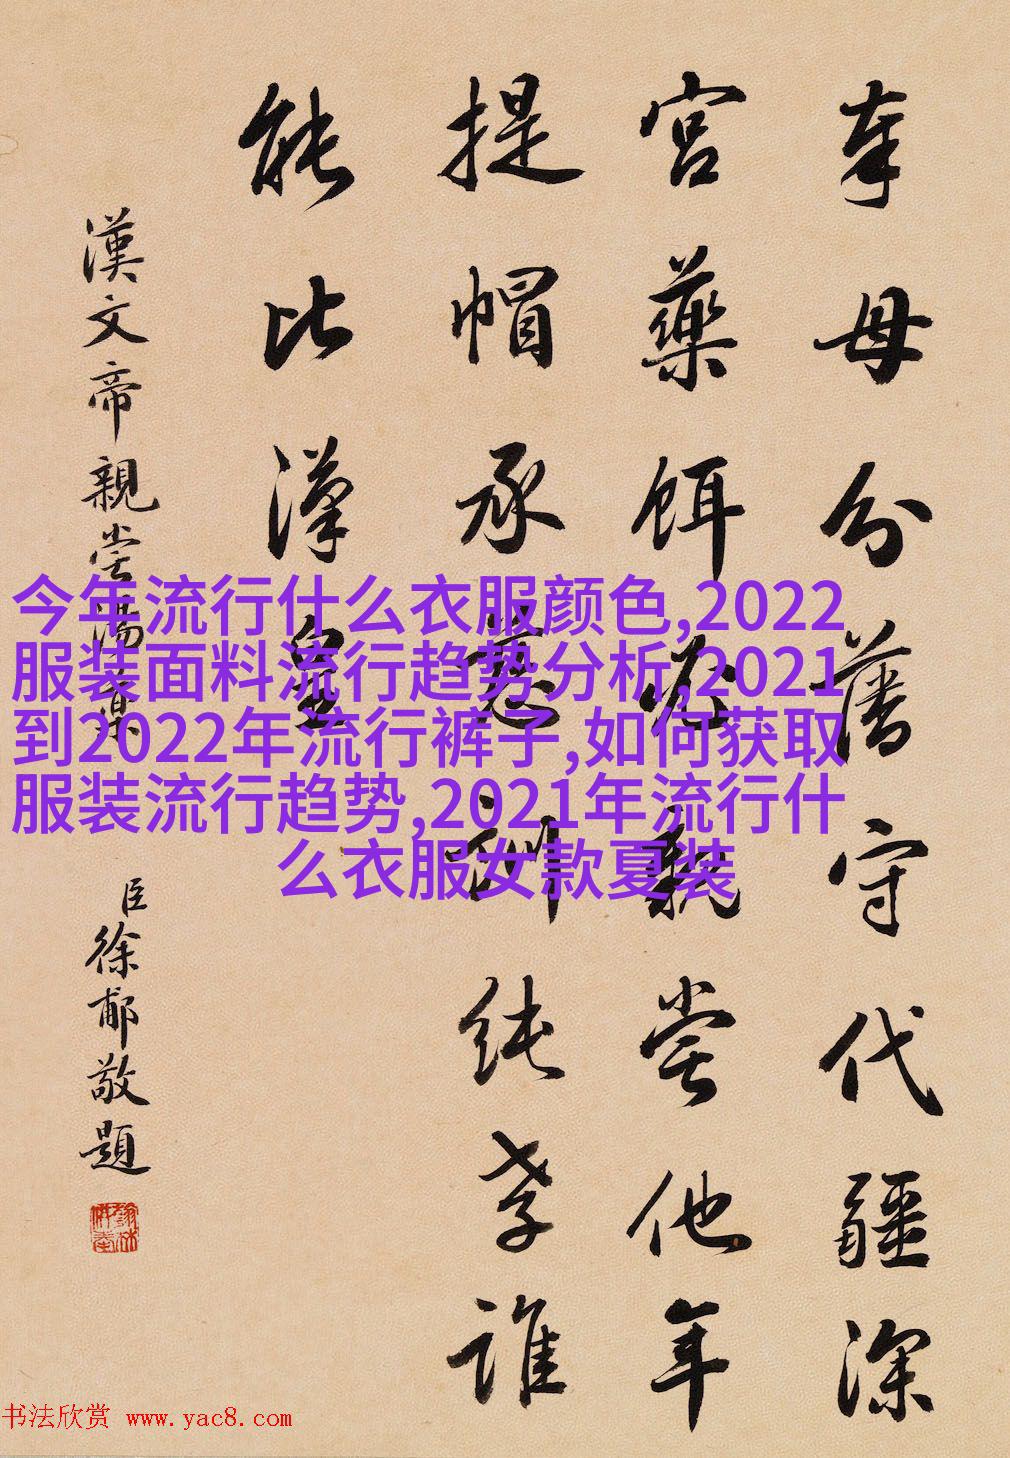 奉母分藩守代疆深
宮藥餌必親嘗他年
提帽承慈訓純孝誰
能比漢皇
漢文帝親嘗湯藥
臣徐郙敬題
今年流行什么衣服颜色,2022
服装面料流行趋势分析,2021
到2022年流行裤子,如何获取
服装流行趋势,2021年流行什
么衣服女款夏装
书法欣赏 www.yac8.com